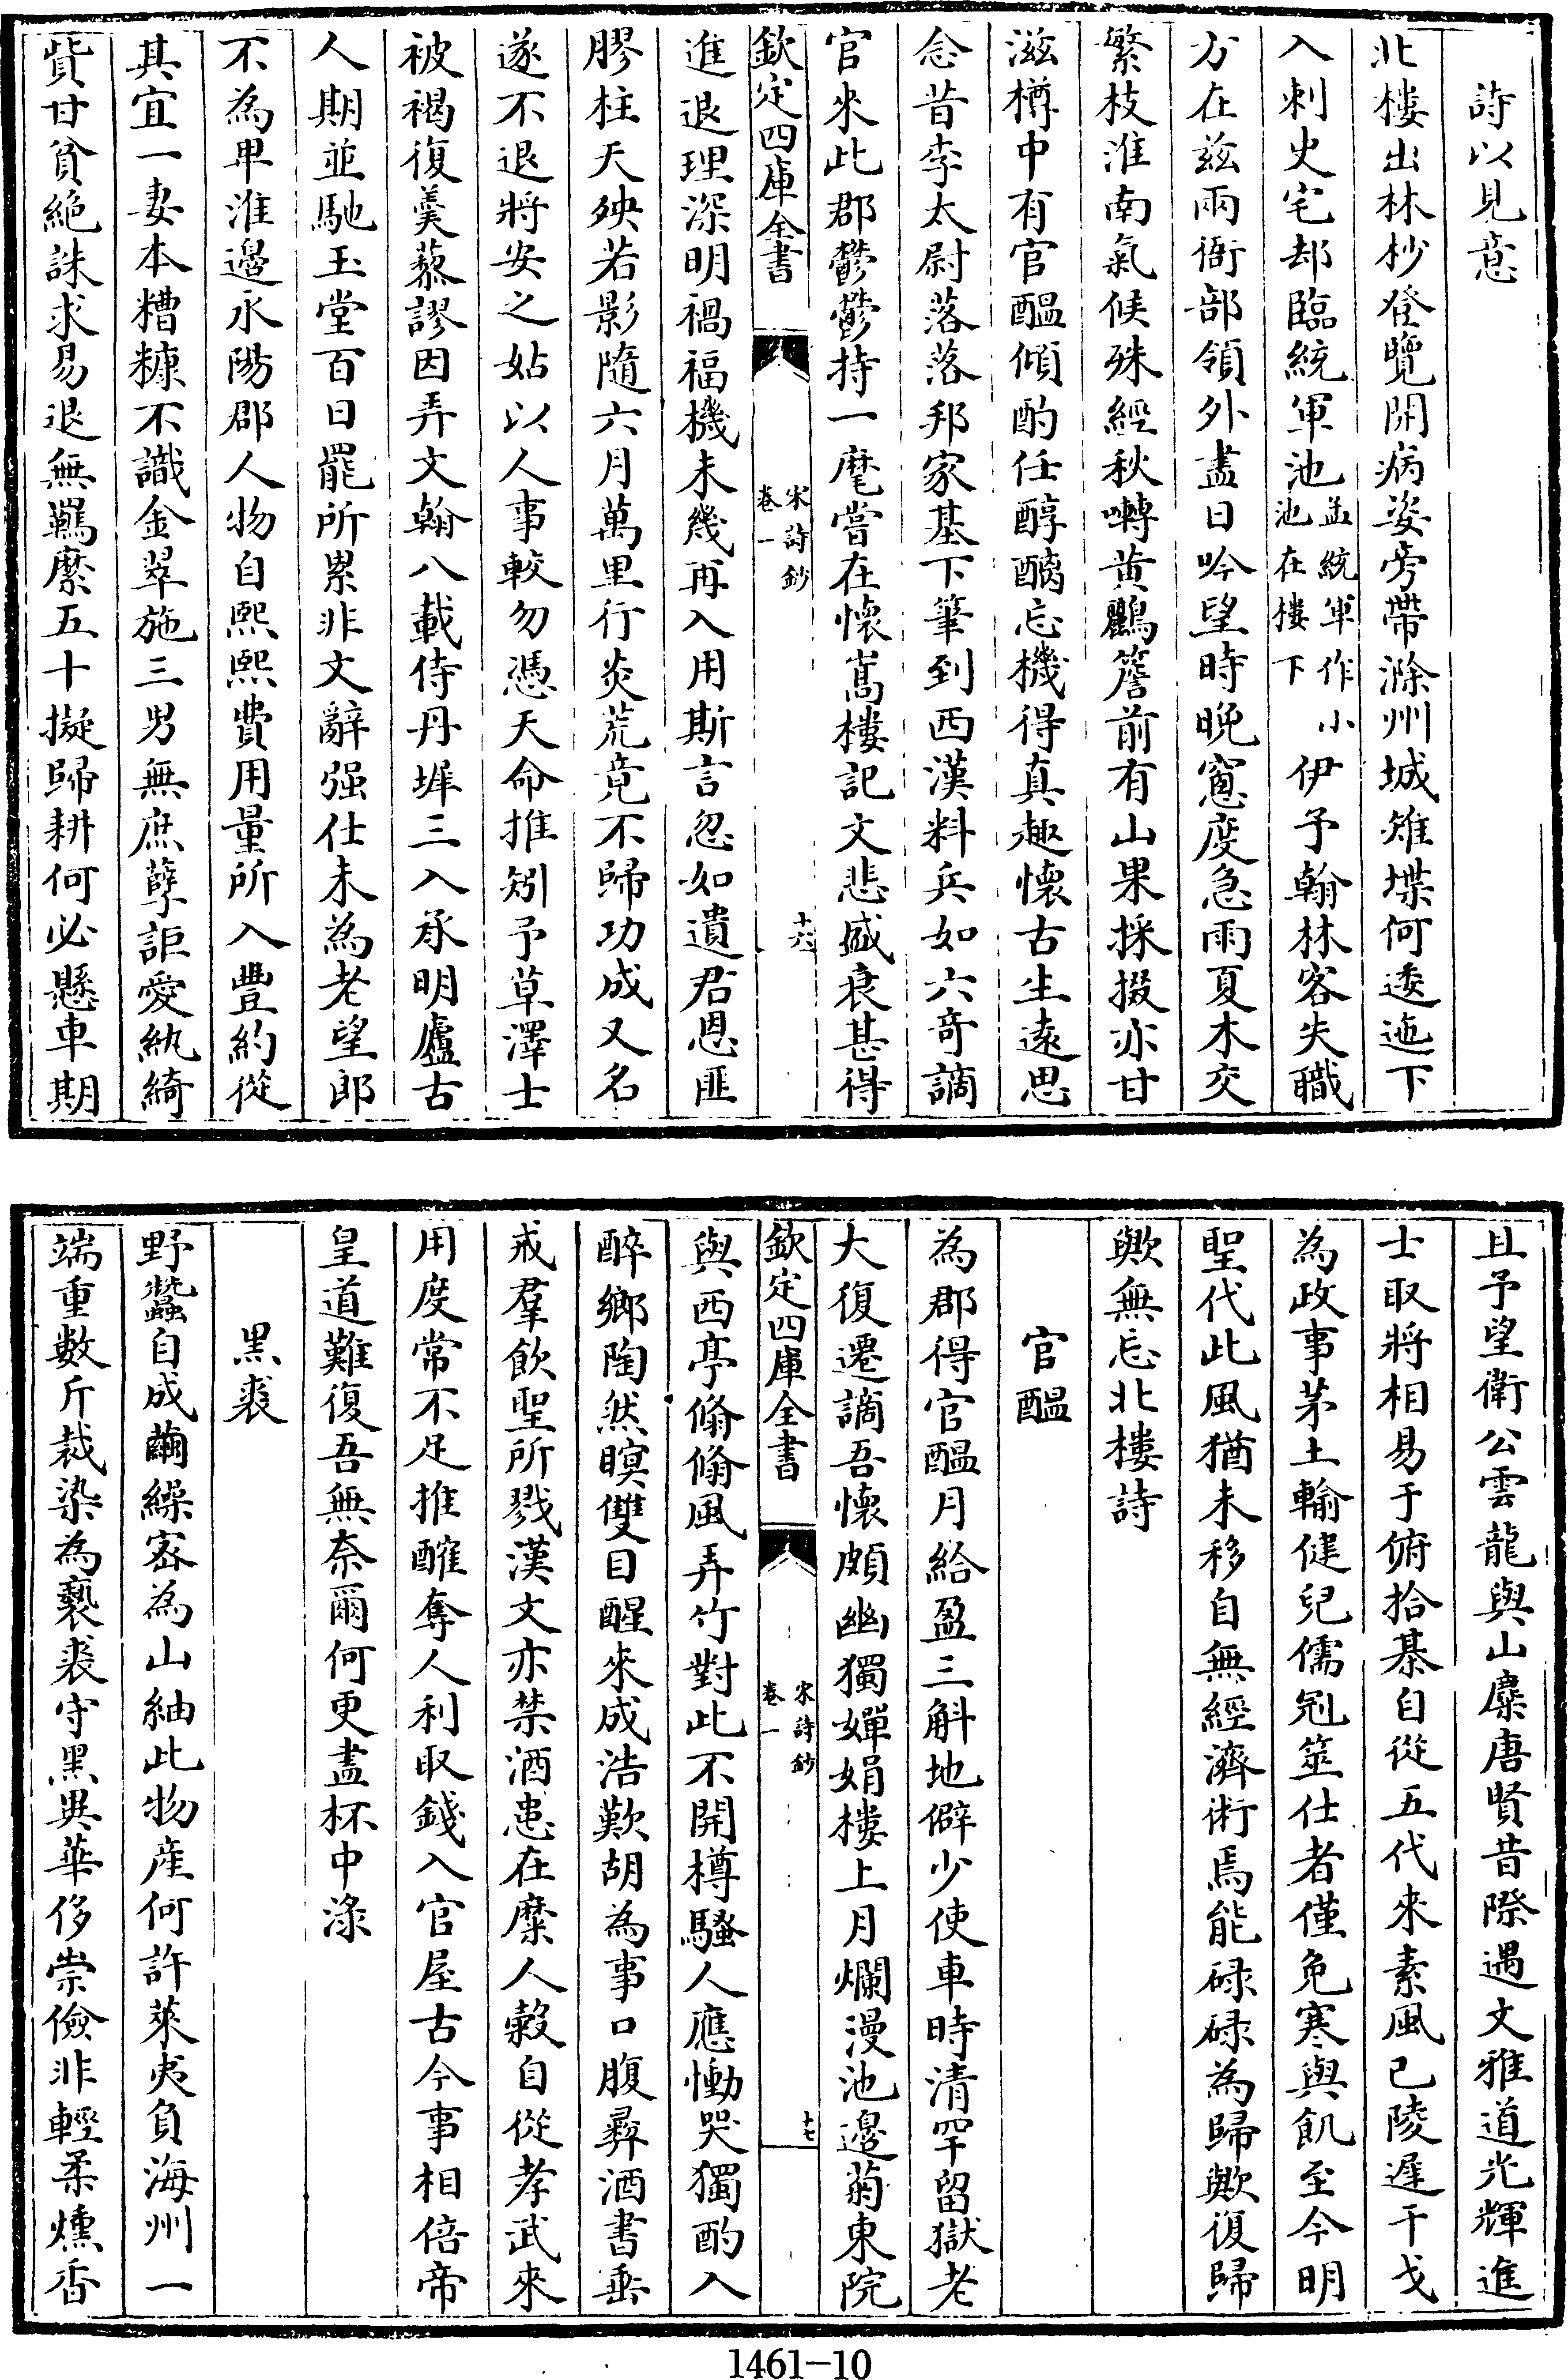 詩以見意
北樓出林杪登覽開病姿旁帶滁州城雉堞何逶迤下
入刺史宅却臨統軍池孟統軍作小池在樓下伊予翰林客失職
方在兹兩衙部領外盡日吟望時晚窻度急雨夏木交
繁枝淮南氣候殊經秋囀黄鸝簷前有山果採掇亦甘
滋樽中有官醖傾酌任醇醨忘機得真趣懷古生遠思
念昔李太尉落落邦家基下筆到西漢料兵如六奇謫
官來此郡鬱鬱持一麾嘗在懷嵩樓記文悲盛衰甚得
欽定四庫全書
宋詩鈔
卷一
十六
進退理深明禍福機未幾再入用斯言忽如遺君恩匪
膠柱天殃若影隨六月萬里行炎荒竟不歸功成又名
遂不退將安之姑以人事較勿憑天命推矧予草澤士
被褐復羹藜謬因弄文翰八載侍丹墀三入承明廬古
人期並馳玉堂百日罷所累非文辭强仕未為老望郎
不為卑淮邉永陽郡人物自熙熙費用量所入豐約從
其宜一妻本糟糠不識金翠施三男無庶孽詎愛紈綺
貲甘貧絶誅求易退無羈縻五十擬歸耕何必懸車期
且予望衛公雲龍與山麋唐賢昔際遇文雅道光輝進
士取將相易于俯拾棊自從五代來素風已陵遲干戈
為政事茅土輸健兒儒冠筮仕者僅免寒與飢至今明
聖代此風猶未移自無經濟術焉能碌碌為歸歟復歸
歟無忘北樓詩
官醖
為郡得官醖月給盈三斛地僻少使車時清罕留獄老
大復遷謫吾懷頗幽獨嬋娟樓上月爛漫池邉菊東院
欽定四庫全書
宋詩鈔
卷一
十七
與西亭翛翛風弄竹對此不開樽騷人應慟哭獨酌入
醉鄉陶然瞑雙目醒來成浩歎胡為事口腹彛酒書垂
戒羣飲聖所戮漢文亦禁酒患在糜人穀自從孝武來
用度常不足推酤奪人利取錢入官屋古今事相倍帝
皇道難復吾無奈爾何更盡杯中渌
黒裘
野蠶自成繭繰宻為山紬此物産何許萊夷負海州一
端重數斤裁染為褻裘守黒異華侈崇儉非輕柔燻香
1461-10